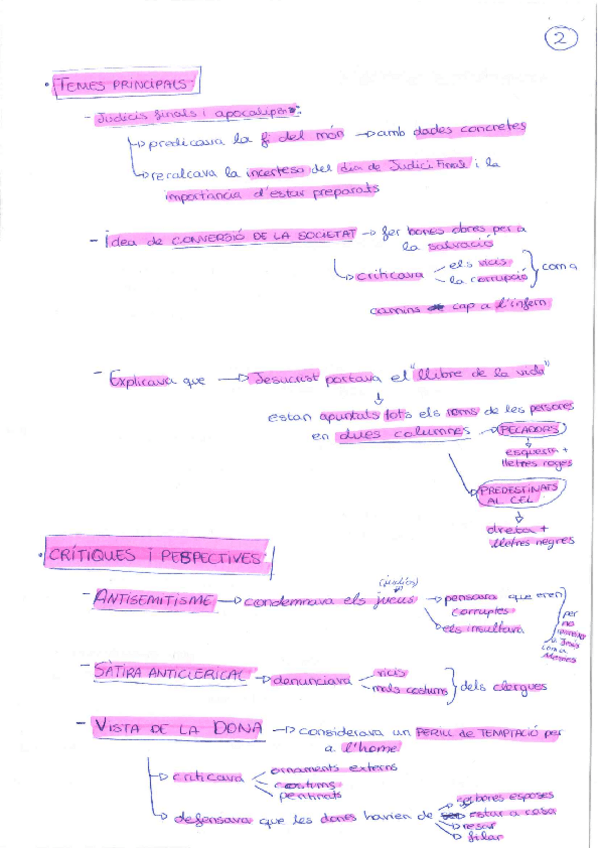 2
• TEMES PRINCIPALS:
- Judicis finals i apocalipsi:
predicava la fi del món → amb dades concretes
recalcava la incertesa del dia de Judici Final i la
importància d'estar preparats
- Idea de CONVERSIÓ DE LA SOCIETAT → fer bones obres per a
la salvació
criticava
els vicis
la corrupció
com a
camins cap a l'infern
- Explicava que → Jesucrist portava el "llibre de la vida"
estan apuntats tots els noms de les persones
en dues columnes → PECADORS
esquerra +
lletres roges
PREDESTINATS
AL CEL
dreta +
lletres negres
• CRÍTIQUES I PERSPECTIVES:
(judíos)
- ANTISEMITISME → condemnava els jueus → pensava que eren
corruptes
els insultava
per
no
a Jesús
com a
Messies
- SÀTIRA ANTICLERICAL → denunciava
vicis
mals costums
dels clergues
- VISTA DE LA DONA → considerava un PERILL de TEMPTACIÓ per
a l'home
criticava
ornaments externs
pentinats
defensava que les dones havien de
ser bones esposes
estar a casa
resar
filar